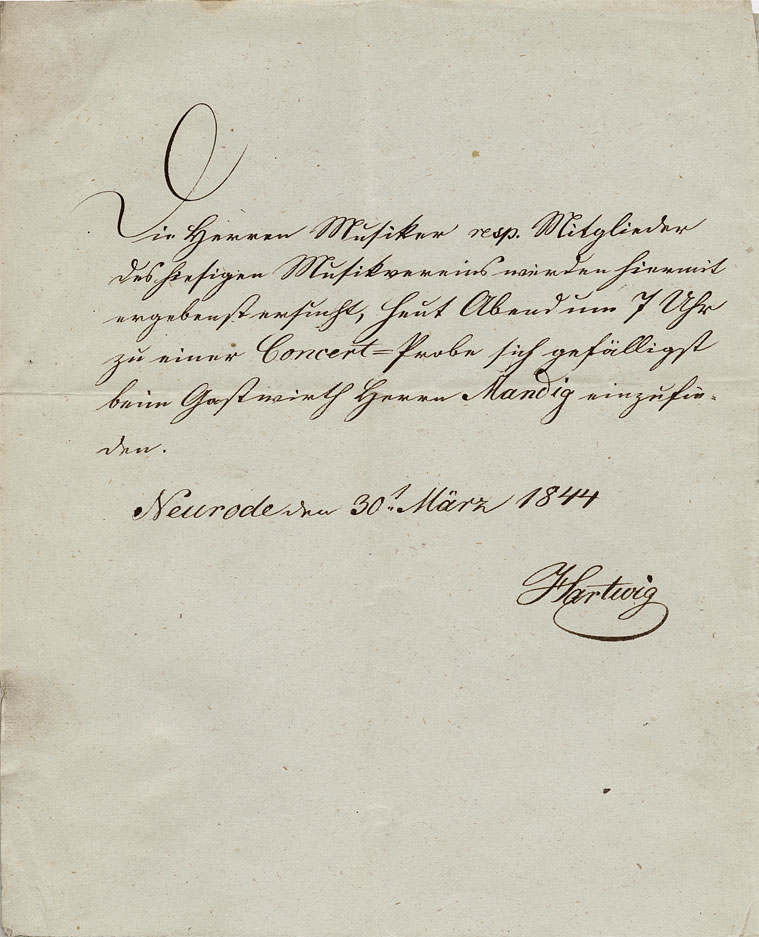 Die Herren Musiker resp. Mitglieder
des hiesigen Musikvereins werden hiermit
ergebenst ersucht, heut Abend um 7 Uhr
zu einer Concert=Probe sich gefälligst
beim Gastwirth Herrn Mandig einzufin-
den.
Neurode den 30t März 1844
Hartwig